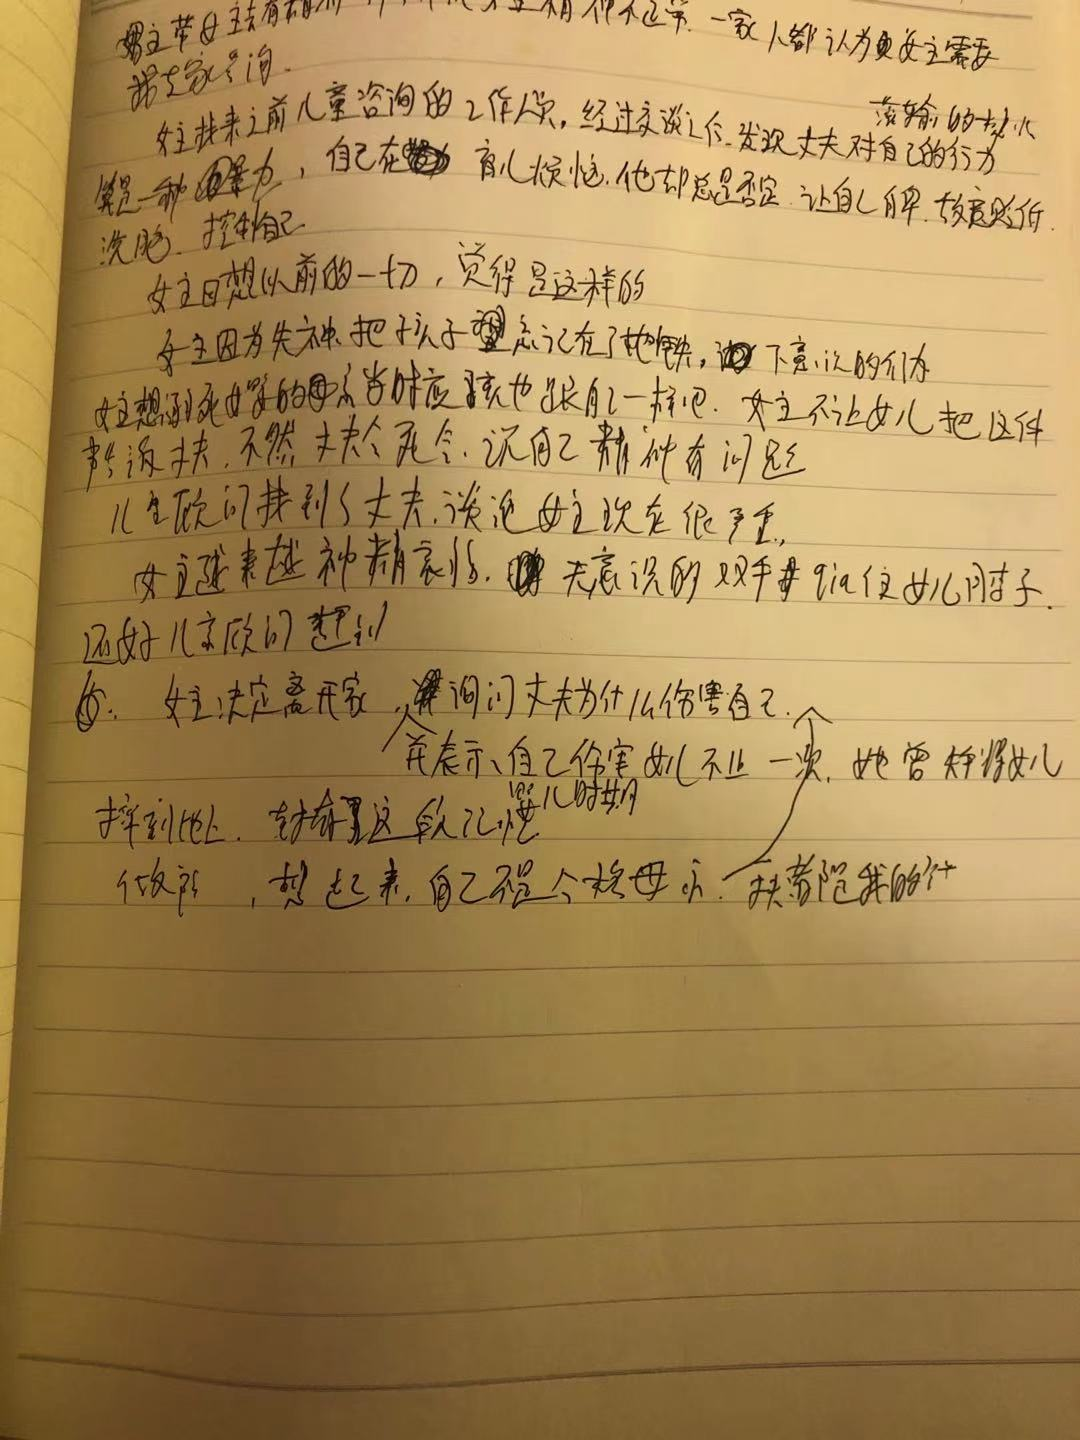 男主带女主去看精神 主精神不正常. 一家人都认为女主需要
找专家咨询.
女主找来之前儿童咨询的工作人员, 经过交谈之后. 发现丈夫对自己的行为
算是一种暴力, 自己在 育儿烦恼. 他却总是否定. 让自己自卑. 故意贬低.
洗脑. 控制自己
女主回想以前的一切, 觉得是这样的
女主因为失神. 把孩子 忘记在了地铁, 下意识的行为
女主想到死婴的母亲当时应该也跟自己一样吧. 女主不让女儿把这件
事告诉丈夫. 不然丈夫会 说自己精神有问题
儿童顾问找到了丈夫. 谈论女主现在很严重.
女主越来越神精衰弱. 无意识的双手 qia住女儿脖子.
还好儿童顾问赶到
女主决定离开家, 询问丈夫为什么伤害自己.
并表示、自己伤害女儿不止一次. 她曾 女儿
摔到地上. 这段记忆 婴儿时期
, 想起来, 自己不是合格母亲.